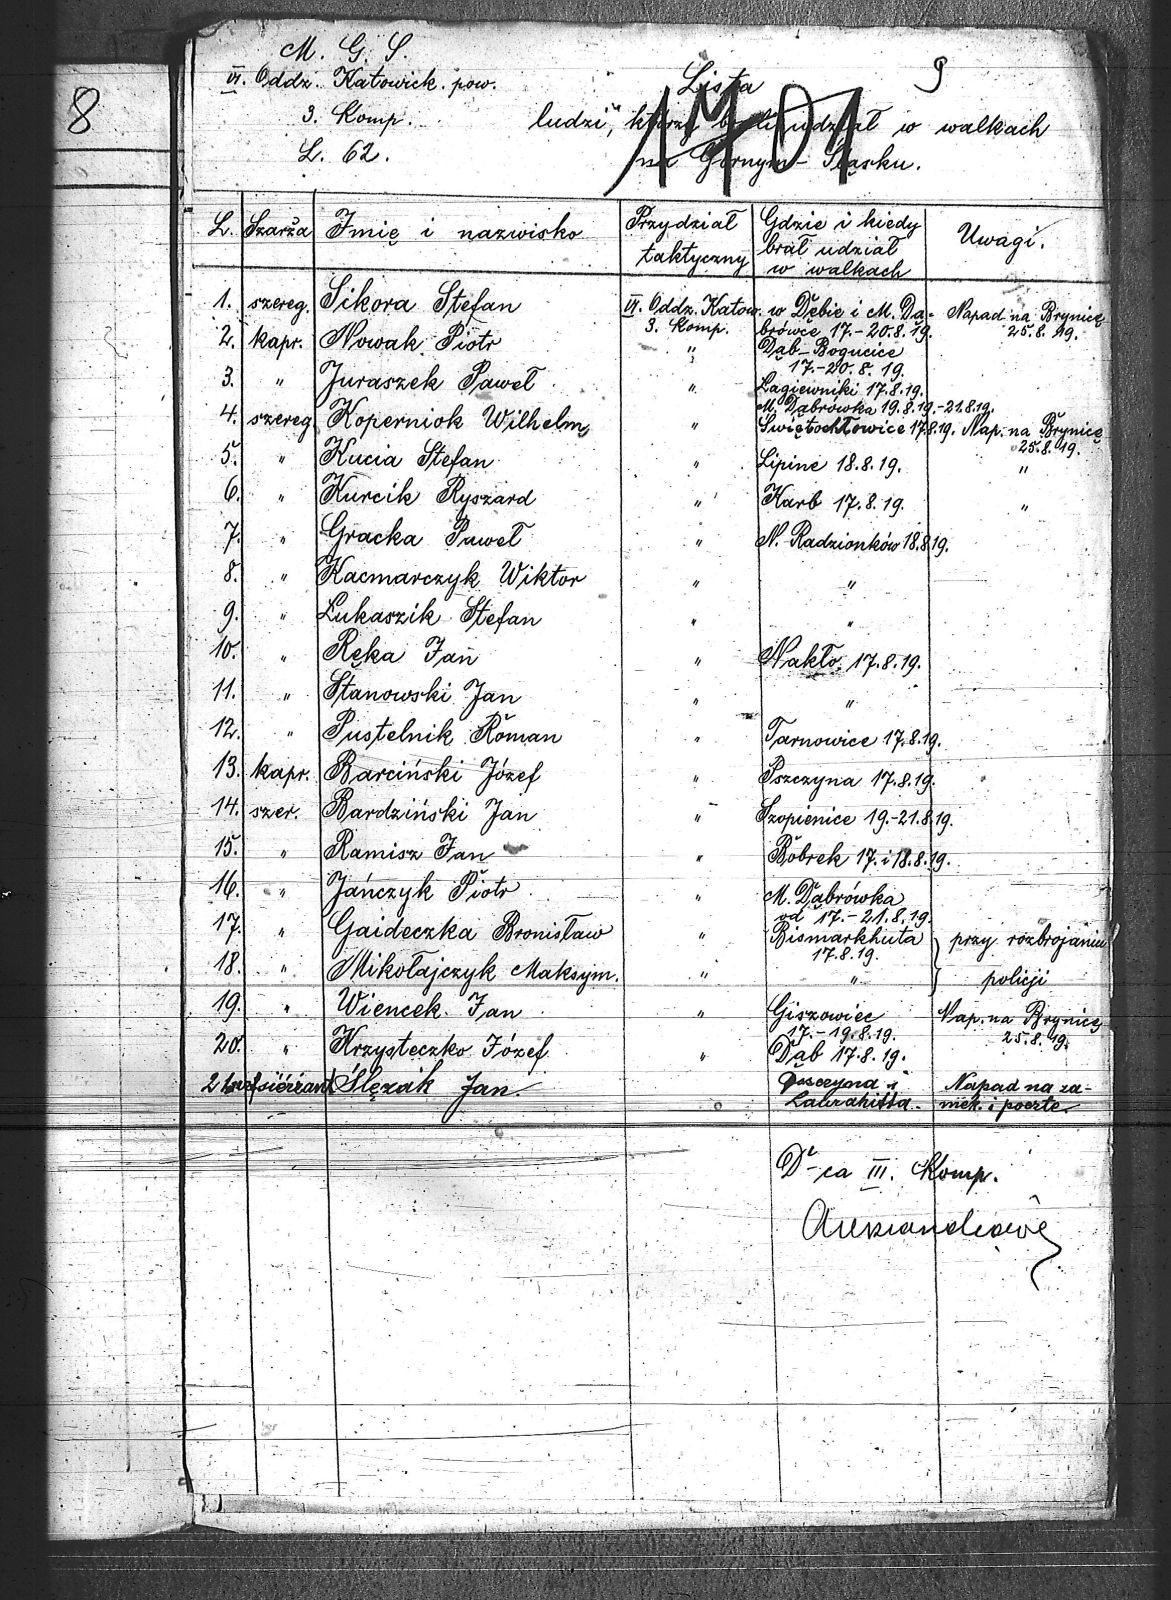 8
M. G. S.
VI. Oddz. Katowick. pow.
3. Komp.
L. 62.
9
Lista
ludzi, którzy brali udział w walkach
na Górnym-Śląsku.
1701
L. Szarża Imię i nazwisko Przydział taktyczny Gdzie i kiedy brał udział w walkach Uwagi.
1. szereg. Sikora Stefan VI. Oddz. Katow. 3. Komp. w Dębie i M. Dąbrówce 17.-20.8.19. Napad na Brynicę 25.8.19.
2. kapr. Nowak Piotr " Dąb-Bogucice 17.-20.8.19.
3. " Juraszek Paweł " Łagiewniki 17.8.19. M. Dąbrówka 19.8.19.-21.8.19.
4. szereg Koperniok Wilhelm " Świętochłowice 17.8.19. Nap. na Brynicę 25.8.19.
5. " Kucia Stefan " Lipine 18.8.19. "
6. " Kurcik Ryszard " Karb 17.8.19. "
7. " Gracka Paweł " N. Radzionków 18.8.19.
8. " Kacmarczyk Wiktor " "
9. " Łukaszik Stefan " "
10. " Ręka Jan " Nakło 17.8.19.
11. " Stanowski Jan " "
12. " Pustelnik Roman " Tarnowice 17.8.19.
13. kapr. Barciński Józef " Pszczyna 17.8.19.
14. szer. Bardziński Jan " Szopienice 19.-21.8.19.
15. " Ramisz Jan " Bobrek 17. i 18.8.19.
16. " Jańczyk Piotr " M. Dąbrówka od 17.-21.8.19.
17. " Gaideczka Bronisław " Bismarkhuta 17.8.19. przy rozbrojaniu
18. " Mikołajczyk Maksym. " " policji
19. " Wiencek Jan " Giszowiec 17.-19.8.19. Nap. na Brynicę 25.8.19.
20. " Krzysteczko Józef " Dąb 17.8.19.
21. Ślęzak Jan. Pszczyna i Napad na zamek i poczte.
D-ca III. Komp.